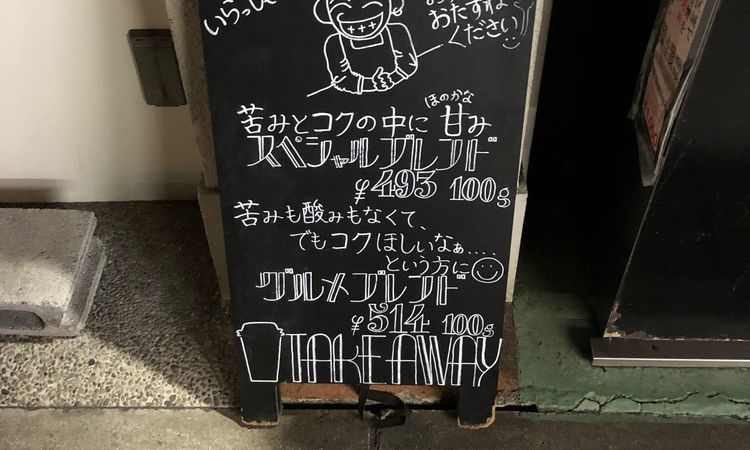 いらっしゃ
おたずね
ください
ほのかな
苦みとコクの中に 甘み
スペシャルブレンド
¥493 100g
苦みも酸みもなくて、
でもコクほしいなぁ....
という方に
グルメブレンド
¥514 100g
TAKE AWAY